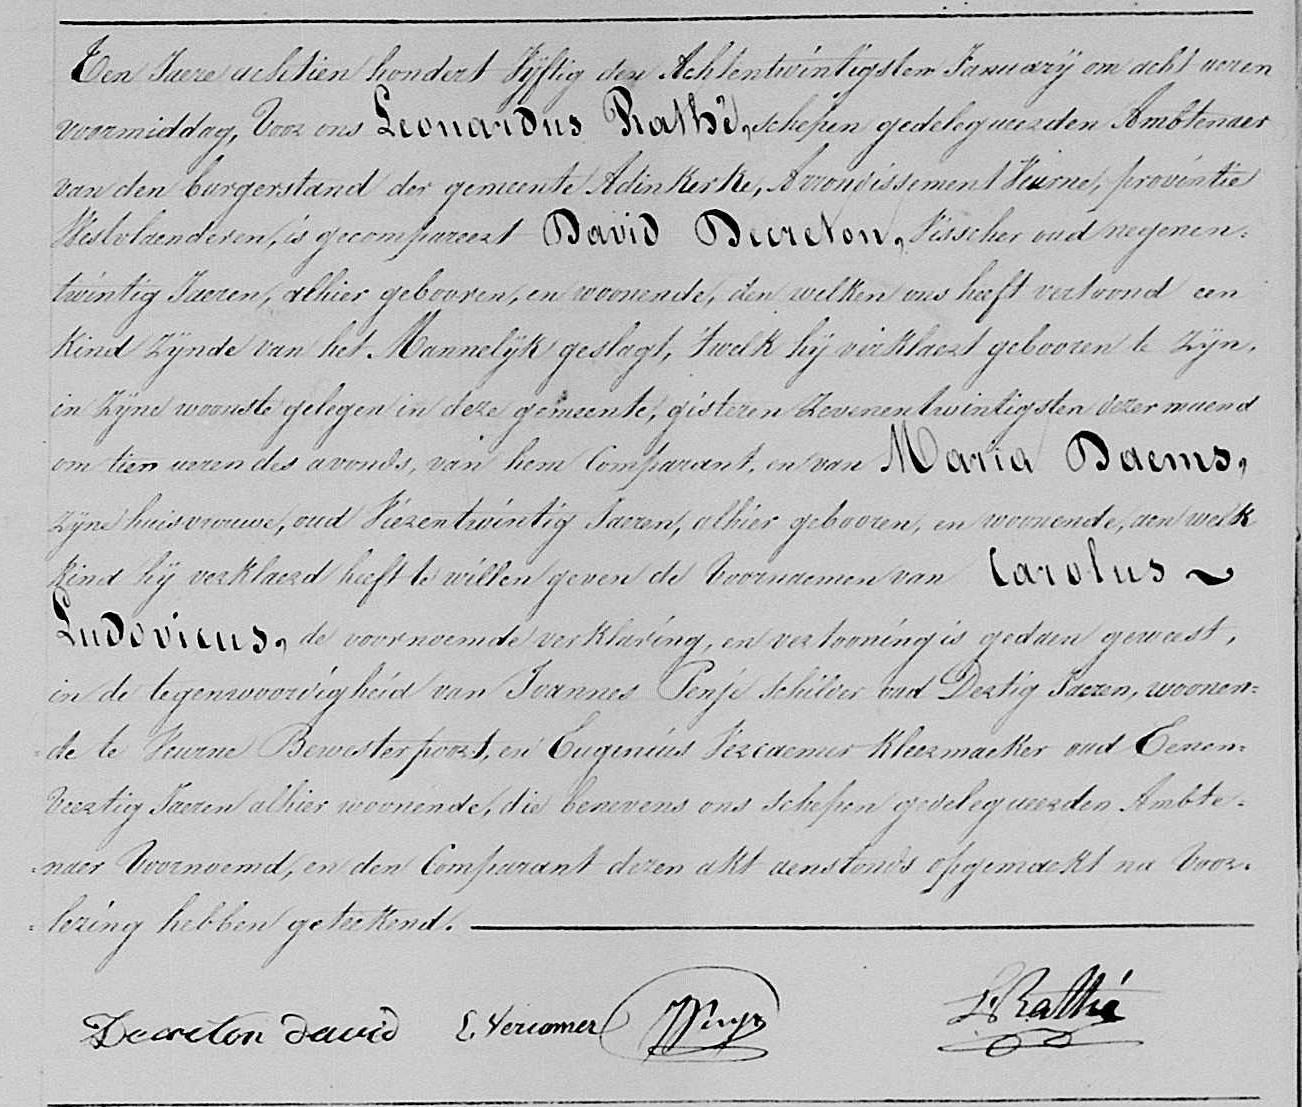 Een Jaere achtien hondert Vyftig den Achtentwintigsten January om acht ueren
voormiddag, Voor ons Leonardus Rathé, schepen gedelegueerden Ambtenaer
van den burgerstand der gemeente Adinkerke, Arrondissement Veurne, provintie
Westvlaenderen, is gecompareert David Decreton, Visscher oud negenen-
twintig Jaeren, alhier gebooren, en woonende, den welken ons heeft vertoond een
kind zynde van het Mannelyk geslagt, 'twelk hy verklaert gebooren te zyn,
in zyne woonste gelegen in deze gemeente, gisteren zevenentwintigsten dezer maend
om tien ueren des avonds, van hem Comparant, en van Maria Daems,
zyne huisvrouwe, oud Vierentwintig Jaeren, alhier gebooren, en woonende, aen welk
kind hy verklaerd heeft te willen geven de Voornaemen van Carolus ~
Ludovicus, de voornoemde verklaring, en vertooning is gedaen geweest,
in de tegenwoordigheid van Joannes schilder oud Dertig Jaeren, woonen=
=de te Veurne Bewesterpoort, en Eugenius Vercaemer kleermaeker oud Eenen=
Veertig Jaeren alhier woonende, die benevens ons schepen gedelegueerden Ambte=
=naer Voornoemd, en den Comparant dezen akt aenstonds opgemaekt na Voor=
=lezing hebben geteekend.
Decreton david E Vercamer L. Rathé